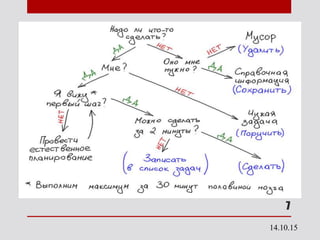 Надо ли что-то
сделать?
ДА
НЕТ
Мне?
Оно мне
нужно?
НЕТ
Мусор
(Удалить)
ДА
Справочная
информация
(Сохранить)
ДА
НЕТ
Я вижу *
первый шаг?
НЕТ
ДА
Провести
естественное
планирование
Можно сделать
за 2 минуты?
Чужая
задача
(Поручить)
НЕТ
ДА
(Записать
в список задач)
(Сделать)
* Выполним максимум за 30 минут половиной мозга
7
14.10.15